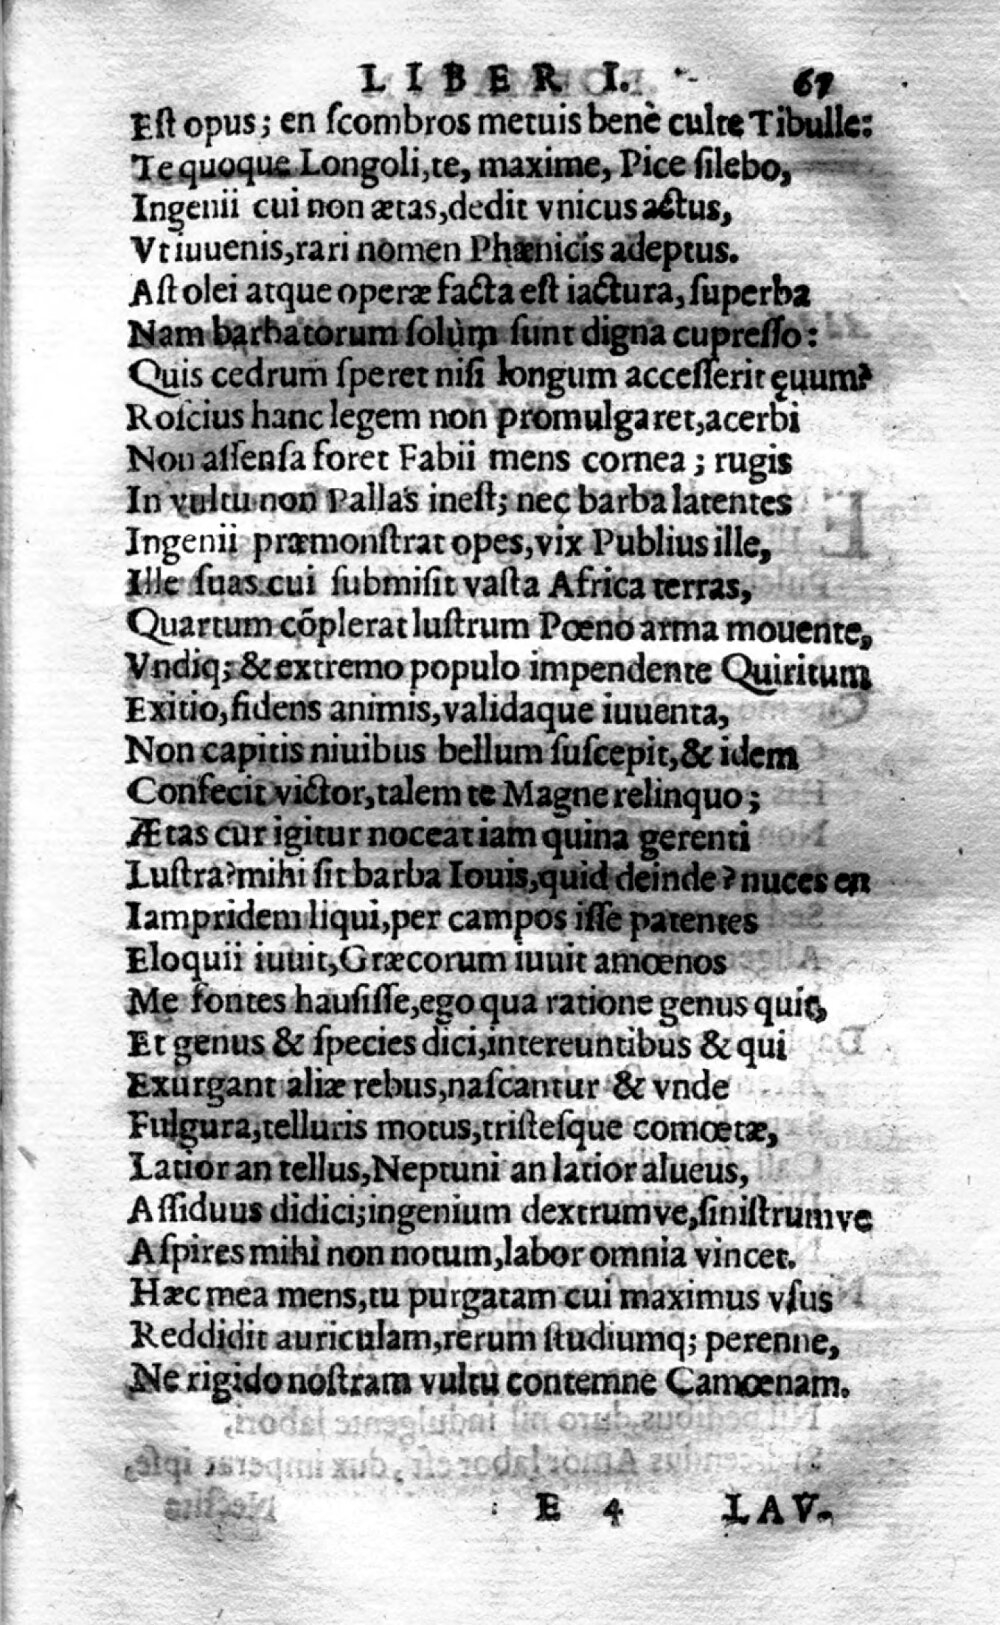 LIBER I. 67
Eſt opus; en ſcombros metuis benè culte Tibulle:
Te quoque Longoli, te, maxime, Pice ſilebo,
Ingenii cui non ætas, dedit vnicus actus,
Vt iuuenis, rari nomen Phænicis adeptus.
Aſt olei atque operæ facta eſt iactura, ſuperba
Nam barbatorum ſolùm ſunt digna cupreſſo:
Quis cedrum ſperet niſi longum acceſſerit ęuum?
Roſcius hanc legem non promulgaret, acerbi
Non aſſenſa foret Fabii mens cornea; rugis
In vultu non Pallas ineſt; nec barba latentes
Ingenii præmonſtrat opes, vix Publius ille,
Ille ſuas cui ſubmiſit vaſta Africa terras,
Quartum cõplerat luſtrum Pœno arma mouente,
Vndiq; & extremo populo impendente Quiritum
Exitio, fidens animis, validaque iuuenta,
Non capitis niuibus bellum ſuſcepit, & idem
Confecit victor, talem te Magne relinquo;
Ætas cur igitur noceat iam quina gerenti
Luſtra? mihi ſit barba Iouis, quid deinde? nuces en
Iampridem liqui, per campos iſſe patentes
Eloquii iuuit, Græcorum iuuit amœnos
Me fontes hauſiſſe, ego qua ratione genus quit,
Et genus & ſpecies dici, intereuntibus & qui
Exurgant aliæ rebus, naſcantur & vnde
Fulgura, telluris motus, triſteſque comœtæ,
Latior an tellus, Neptuni an latior alueus,
Aſſiduus didici; ingenium dextrumve, ſiniſtrumve
Aſpires mihi non notum, labor omnia vincet.
Hæc mea mens, tu purgatam cui maximus vſus
Reddidit auriculam, rerum ſtudiumq; perenne,
Ne rigido noſtram vultu contemne Camœnam.
E 4 LAV-